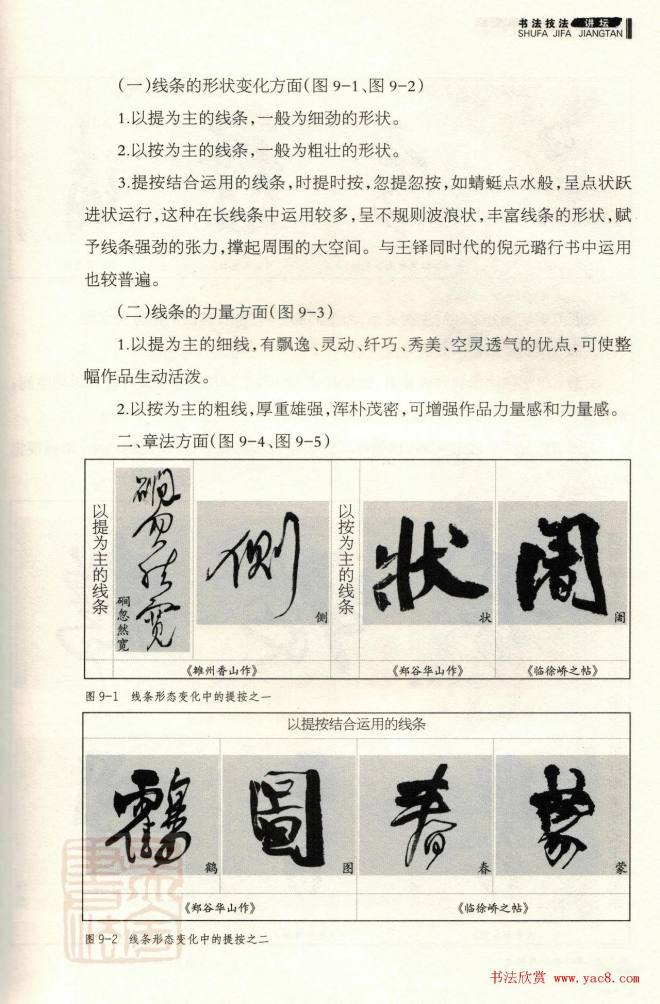 书法技法 讲坛
SHUFA JIFA JIANGTAN
(一)线条的形状变化方面(图 9-1、图 9-2)
1.以提为主的线条,一般为细劲的形状。
2.以按为主的线条,一般为粗壮的形状。
3.提按结合运用的线条,时提时按,忽提忽按,如蜻蜓点水般,呈点状跃
进状运行,这种在长线条中运用较多,呈不规则波浪状,丰富线条的形状,赋
予线条强劲的张力,撑起周围的大空间。与王铎同时代的倪元璐行书中运用
也较普遍。
(二)线条的力量方面(图 9-3)
1.以提为主的细线,有飘逸、灵动、纤巧、秀美、空灵透气的优点,可使整
幅作品生动活泼。
2.以按为主的粗线,厚重雄强,浑朴茂密,可增强作品力量感和力量感。
二、章法方面(图 9-4、图 9-5)
以提为主的线条
磵忽然宽
側
侧
以按为主的线条
狀
状
阇
《雒州香山作》
《郑谷华山作》
《临徐峤之帖》
图 9-1 线条形态变化中的提按之一
以提按结合运用的线条
鶴
鹤
圖
图
春
春
蒙
蒙
《郑谷华山作》
《临徐峤之帖》
图 9-2 线条形态变化中的提按之二
书法欣赏 www.yac8.com